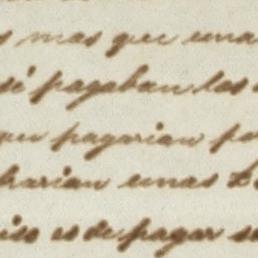 s mas que una
sé pagaban los
que pagarian po
harian unas
iso es de pagar se